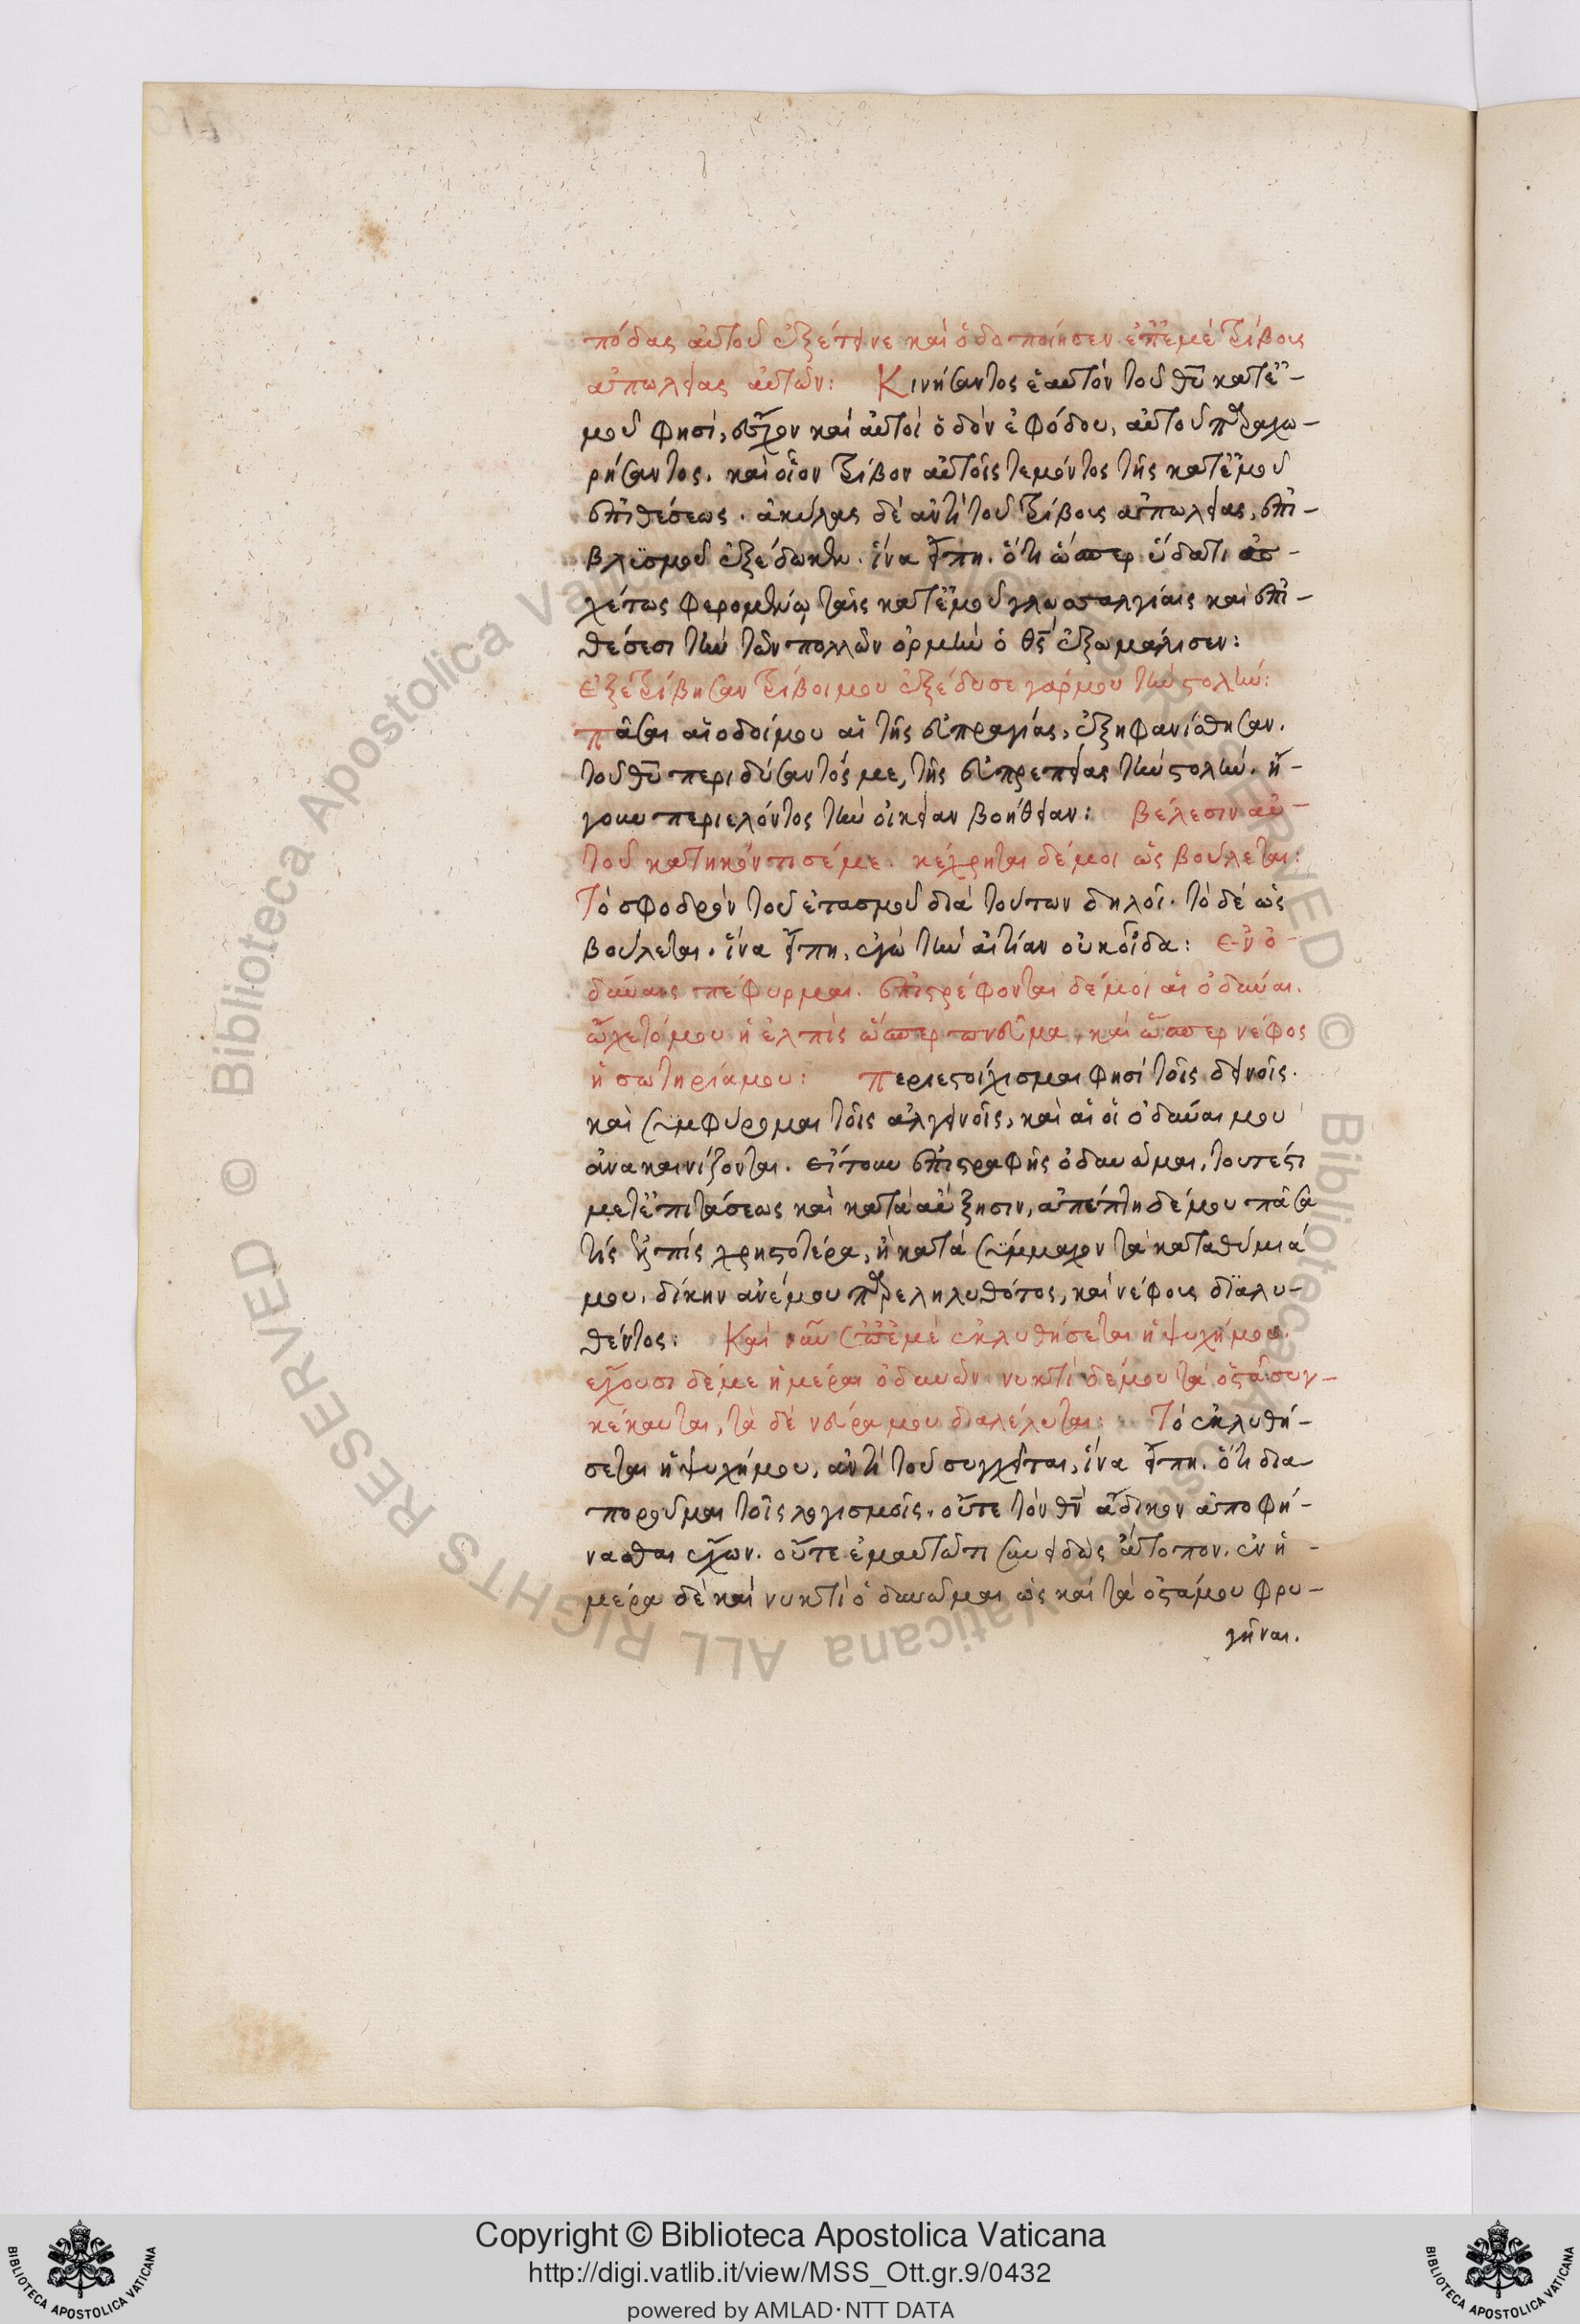 πόδας αὐτοῦ ἐξέτεινε καὶ ὁδοποίησεν ἐπ' ἐμὲ τρίβους
ἀπωλείας αὐτῶν: Κινήσαντος ἑαυτὸν τοῦ θῦ κατ' ἐ-
μοῦ φησί, εὗρον καὶ αὐτοὶ ὁδὸν ἐφόδου, αὐτοῦ παραχω-
ρήσαντος. καὶ οἷον τρίβον αὐτοῖς τεμόντος τῆς κατ' ἐμοῦ
ἐπιθέσεως. ἀκύλας δὲ ἀντὶ τοῦ τρίβους ἀπωλείας, ἐπι-
βλυσμοῦ ἐξέδωκεν. ἵνα εἴπῃ. ὅτι ὥσπερ ὕδατι ἀσ-
χέτως φερομένῳ ταῖς κατ' ἐμοῦ γλωσσαλγίαις καὶ ἐπι-
θέσεσι τὴν τῶν πολλῶν ὁρμὴν ὁ θς ἐξωμάλισεν:
ἐξετρίβησαν τρίβοι μου ἐξέδυσε γάρ μου τὴν στολήν:
πᾶσαι αἱ ὁδοί μου αἱ τῆς εὐπραγίας, ἐξηφανίσθησαν.
τοῦ θῦ περιδύσαντός με, τῆς εὐπρεπείας τὴν στολήν. ἤ-
γουν περιελόντος τὴν οἰκείαν βοήθειαν: βέλεσιν αὐ-
τοῦ κατηκόντισέ με. κέχρηται δέ μοι ὡς βούλεται:
Τὸ σφοδρὸν τοῦ ἐτασμοῦ διὰ τούτων δηλοῖ. τὸ δὲ ὡς
βούλεται. ἵνα εἴπῃ, ἐγὼ τὴν αἰτίαν οὐκ οἶδα: ἐν ὀ-
δύναις πέφυρμαι. ἐπιστρέφονται δέ μοι αἱ ὀδύναι.
ᾤχετό μου ἡ ἐλπὶς ὥσπερ πνεῦμα, καὶ ὥσπερ νέφος
ἡ σωτηρία μου: περιεστοίχισμαι φησὶ τοῖς δεινοῖς.
καὶ συμφύρομαι τοῖς ἀλγεινοῖς, καὶ αἱ ὀδύναι μου
ἀνακαινίζονται. εἴτουν ἐπιστροφῆς ὀδυνῶμαι, τουτέστι
μετ' ἐπιτάσεως καὶ κατὰ αὔξησιν, ἀπέπτη δέ μου πᾶσα
τίς ἐλπὶς χρηστοτέρα, ἢ κατὰ σύμμαχον τὰ καταθύμιά
μου, δίκην ἀνέμου παρεληλυθότος, καὶ νέφους διαλυ-
θέντος: Καὶ νῦν ἐπ' ἐμὲ ἐκλυθήσεται ἡ ψυχή μου.
ἔχουσι δέ με ἡμέραι ὀδυνῶν νυκτὶ δέ μου τὰ ὀστᾶ συγ-
κέκαυται, τὰ δὲ νεῦρα μου διαλέλυται: Τὸ ἐκλυθή-
σεται ἡ ψυχή μου, ἀντὶ τοῦ συγχεῖται, ἵνα εἴπῃ. ὅτι δια-
ποροῦμαι τοῖς λογισμοῖς. οὔτε τὸν θν ἄδικον ἀποφή-
νασθαι ἔχων. οὔτε ἐμαυτῷ τι συνειδὼς ἄτοπον. ἐν ἡ-
μέρᾳ δὲ καὶ νυκτὶ ὀδυνῶμαι ὡς καὶ τὰ ὀστᾶ μου φρυ-
γῆναι.
Biblioteca Apostolica Vaticana
ALL RIGHTS RESERVED ©
Copyright © Biblioteca Apostolica Vaticana
http://digi.vatlib.it/view/MSS_Ott.gr.9/0432
powered by AMLAD·NTT DATA
BIBLIOTECA APOSTOLICA VATICANA
BIBLIOTECA APOSTOLICA VATICANA